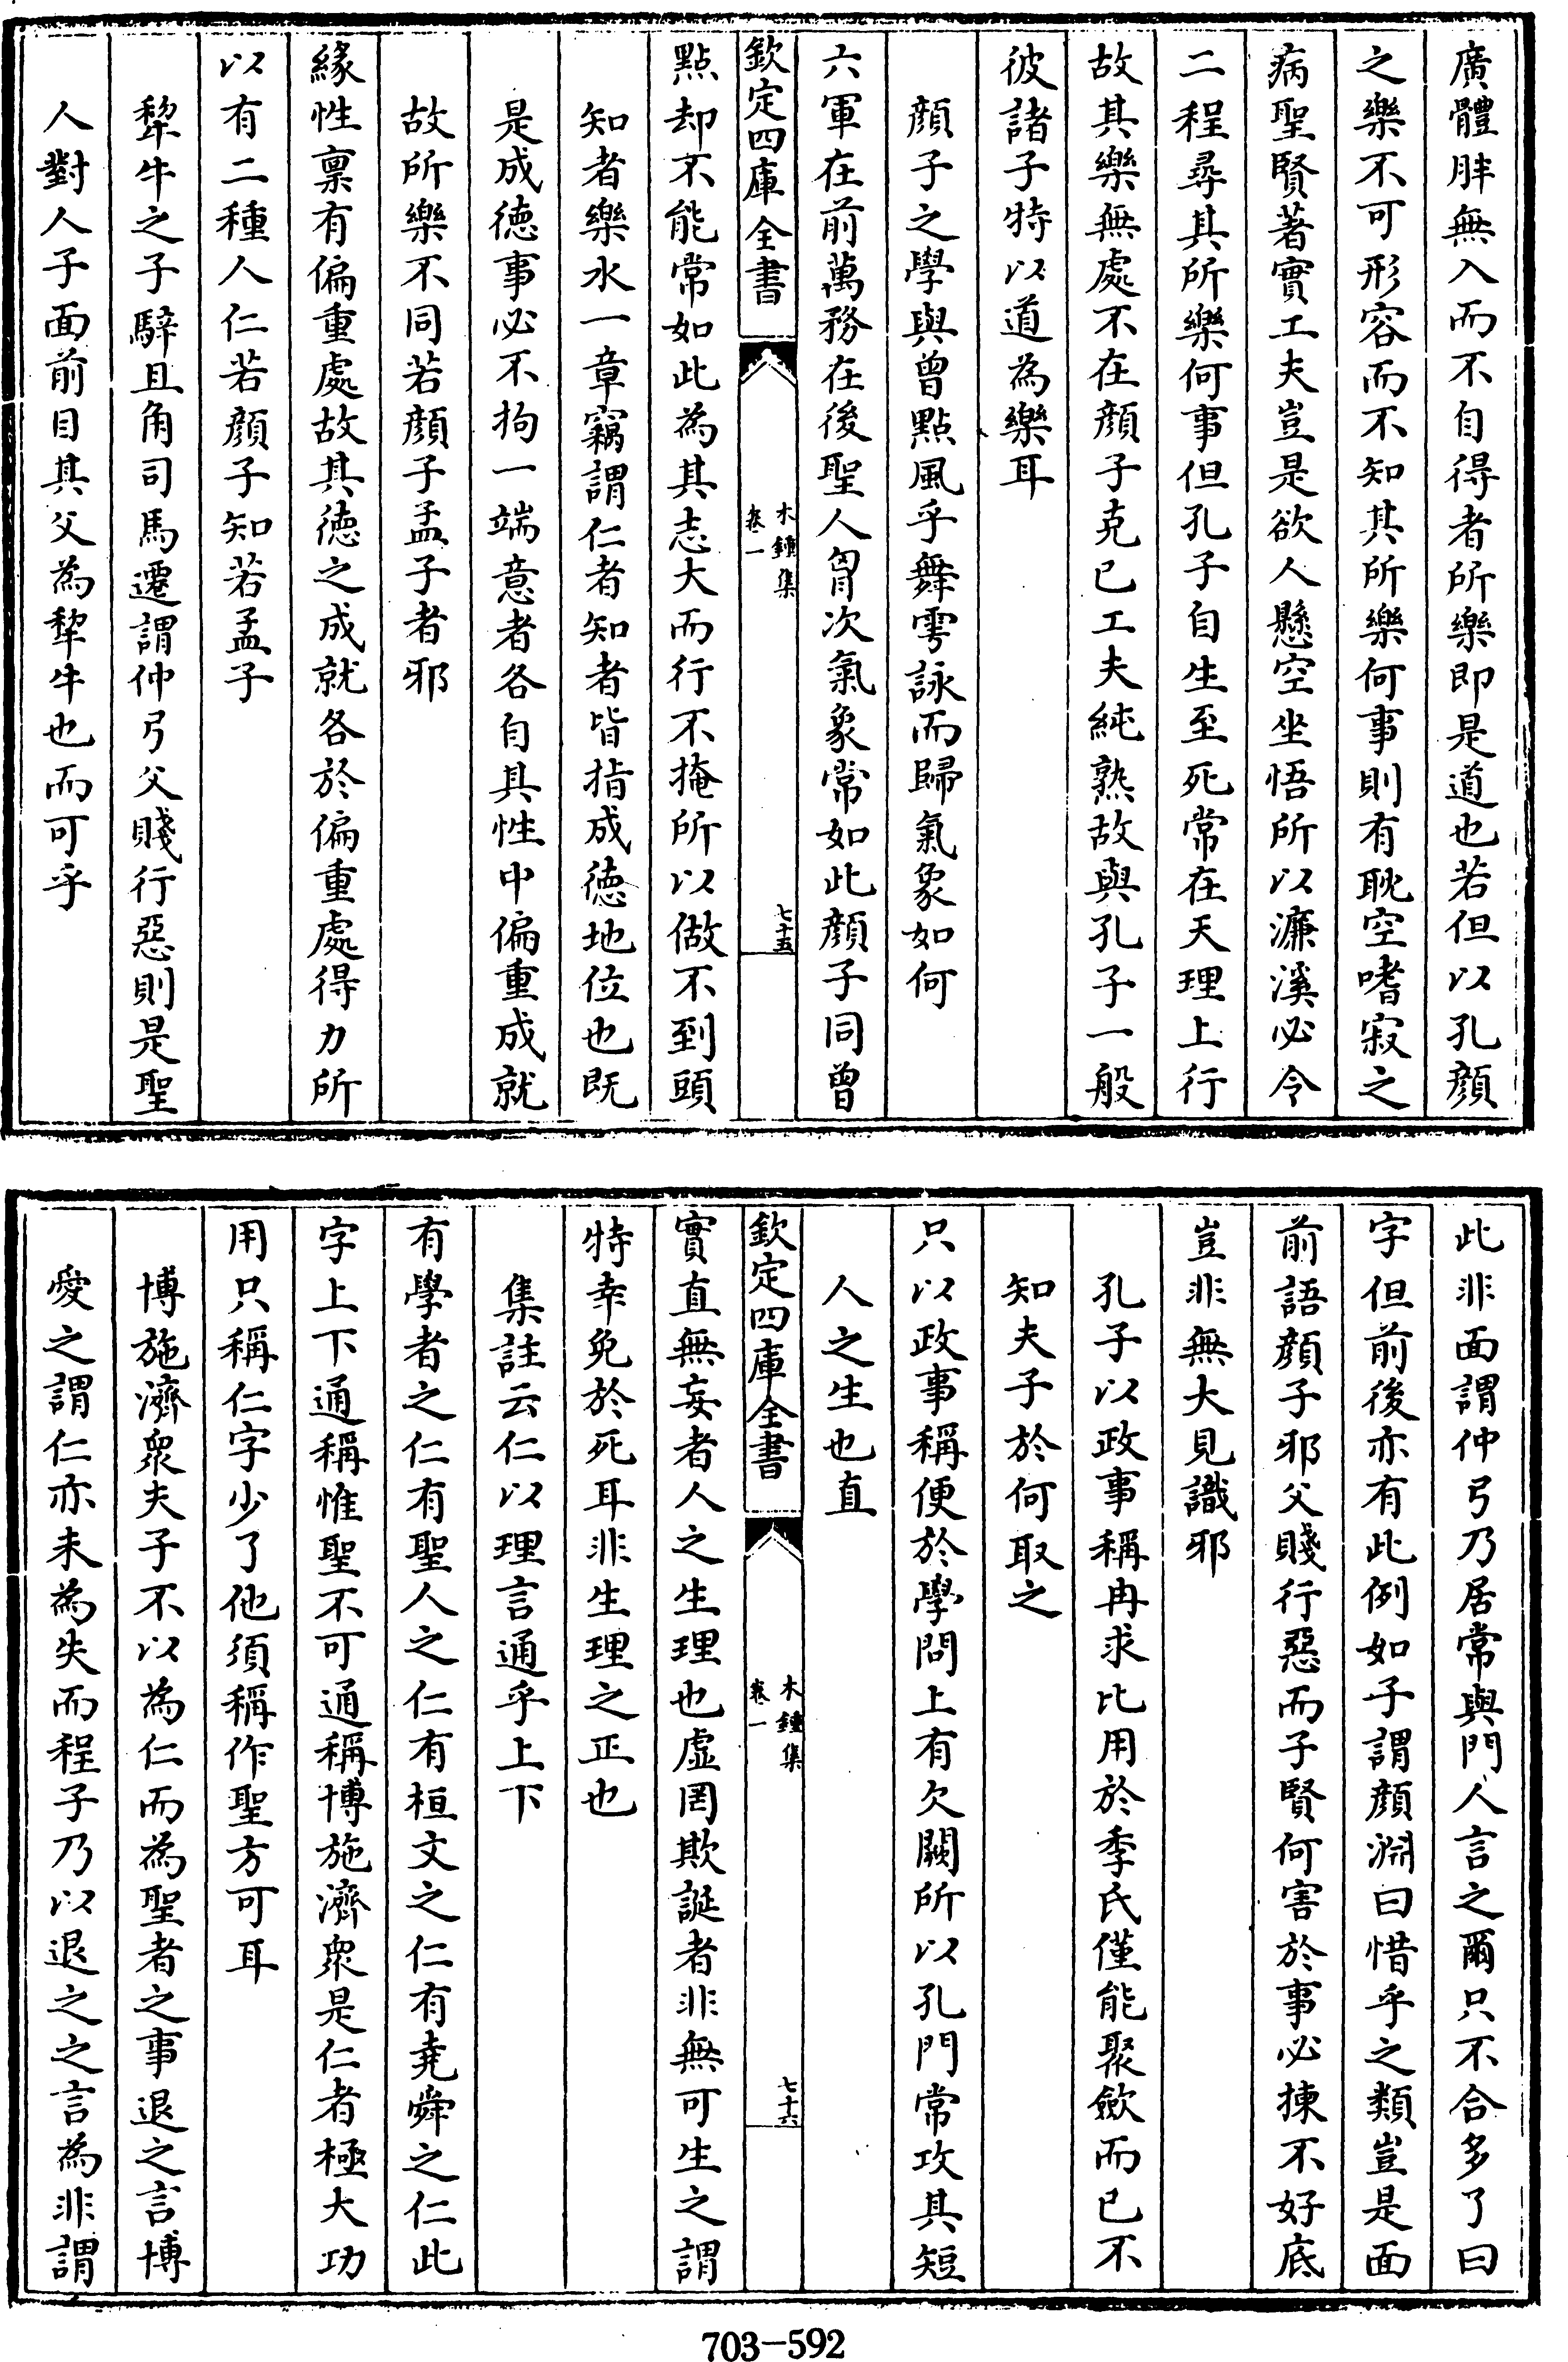 廣體胖無入而不自得者所樂即是道也若但以孔顔
之樂不可形容而不知其所樂何事則有耽空嗜寂之
病聖賢著實工夫豈是欲人懸空坐悟所以濂溪必令
二程尋其所樂何事但孔子自生至死常在天理上行
故其樂無處不在顔子克已工夫純熟故與孔子一般
彼諸子特以道為樂耳
顔子之學與曾點風乎舞雩詠而歸氣象如何
六軍在前萬務在後聖人胷次氣象常如此顔子同曾
欽定四庫全書
木鍾集
卷一
七十五
點却不能常如此為其志大而行不掩所以做不到頭
知者樂水一章竊謂仁者知者皆指成徳地位也既
是成徳事必不拘一端意者各自具性中偏重成就
故所樂不同若顔子孟子者邪
緣性禀有偏重處故其徳之成就各於偏重處得力所
以有二種人仁若顔子知若孟子
犂牛之子騂且角司馬遷謂仲弓父賤行惡則是聖
人對人子面前目其父為犂牛也而可乎
此非面謂仲弓乃居常與門人言之爾只不合多了曰
字但前後亦有此例如子謂顔淵曰惜乎之類豈是面
前語顔子邪父賤行惡而子賢何害於事必揀不好底
豈非無大見識邪
孔子以政事稱冉求比用於季氏僅能聚歛而已不
知夫子於何取之
只以政事稱便於學問上有欠闕所以孔門常攻其短
人之生也直
欽定四庫全書
木鍾集
卷一
七十六
實直無妄者人之生理也虚罔欺誕者非無可生之謂
特幸免於死耳非生理之正也
集註云仁以理言通乎上下
有學者之仁有聖人之仁有桓文之仁有堯舜之仁此
字上下通稱惟聖不可通稱博施濟衆是仁者極大功
用只稱仁字少了他須稱作聖方可耳
博施濟衆夫子不以為仁而為聖者之事退之言博
愛之謂仁亦未為失而程子乃以退之之言為非謂
703-592